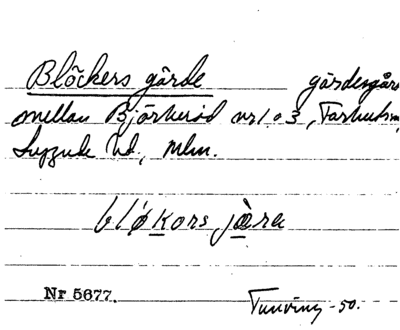 Blöckers gärde gärdesgård
mellan Björkeröd nr 1 o 3, Farhult sn,
Luggude hd, Mlm.
bløkors jæra
Nr 5677.
Tunving -50.